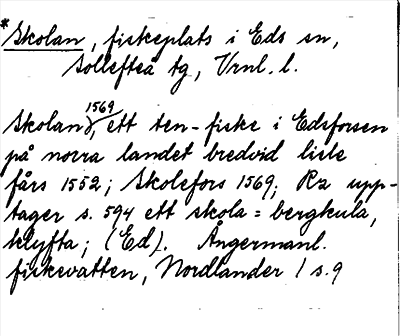 *Skolan, fiskeplats i Eds sn,
Sollefteå tg, Vrnl. l.
1569
Skolan, ett ten-fiske i Edsforsen
på norra landet bredvid lisle
fårs 1552; Skolefors 1569; Rz upp-
tager s. 594 ett skola = bergkula,
klyfta; (Ed). Ångermanl.
fiskevatten, Nordlander 1 s. 9